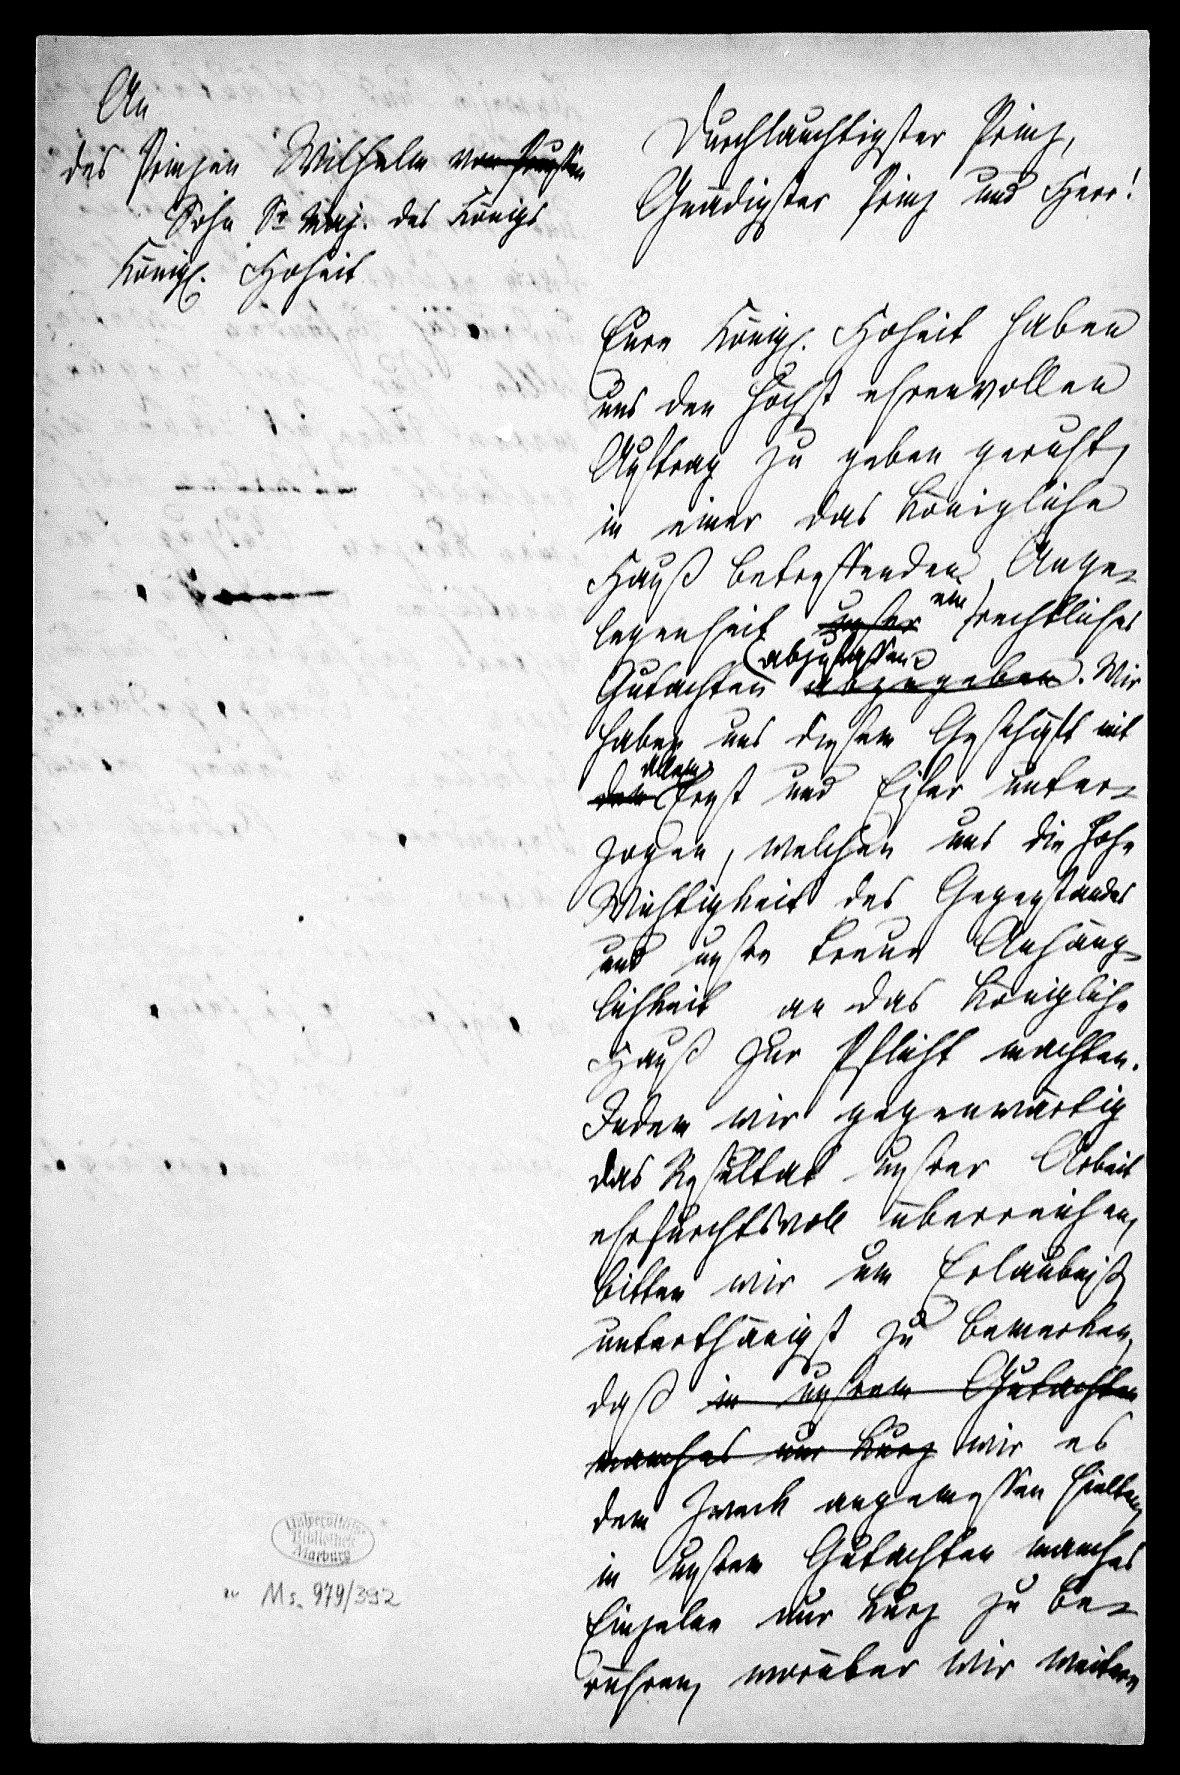 An
des Prinzen Wilhelm von Preußen
Sohn Sr Maj. des Königs
Königl. Hoheit
Durchlauchtigster Prinz,
Gnädigster Prinz und Herr!
Eure Königl. Hoheit haben
uns den höchst ehrenvollen
Auftrag zu geben geruht,
in einer das Königliche
Hauß betreffenden Ange-
legenheit unser ein rechtliches
Gutachten abzugeben abzufassen. Wir
haben uns diesem Geschäft mit
dem allem Ernst und Eifer unter-
zogen, welchen uns die hohe
Wichtigkeit des Gegenstandes
und unsre treue Anhäng-
lichkeit an das Königliche
Hauß zur Pflicht machten.
Indem wir gegenwärtig
das Resultat unsrer Arbeit
ehrfurchtsvoll überreichen,
bitten wir um Erlaubniß
unterthänigst zu bemerken,
daß in unsrem Gutachten
manches nur kurz wir es
dem Zweck angemessen hielten,
in unsrem Gutachten manches
Einzelne nur kurz zu be-
rühren, worüber wir weitere
Universitäts-
Bibliothek
Marburg
Ms. 979/392